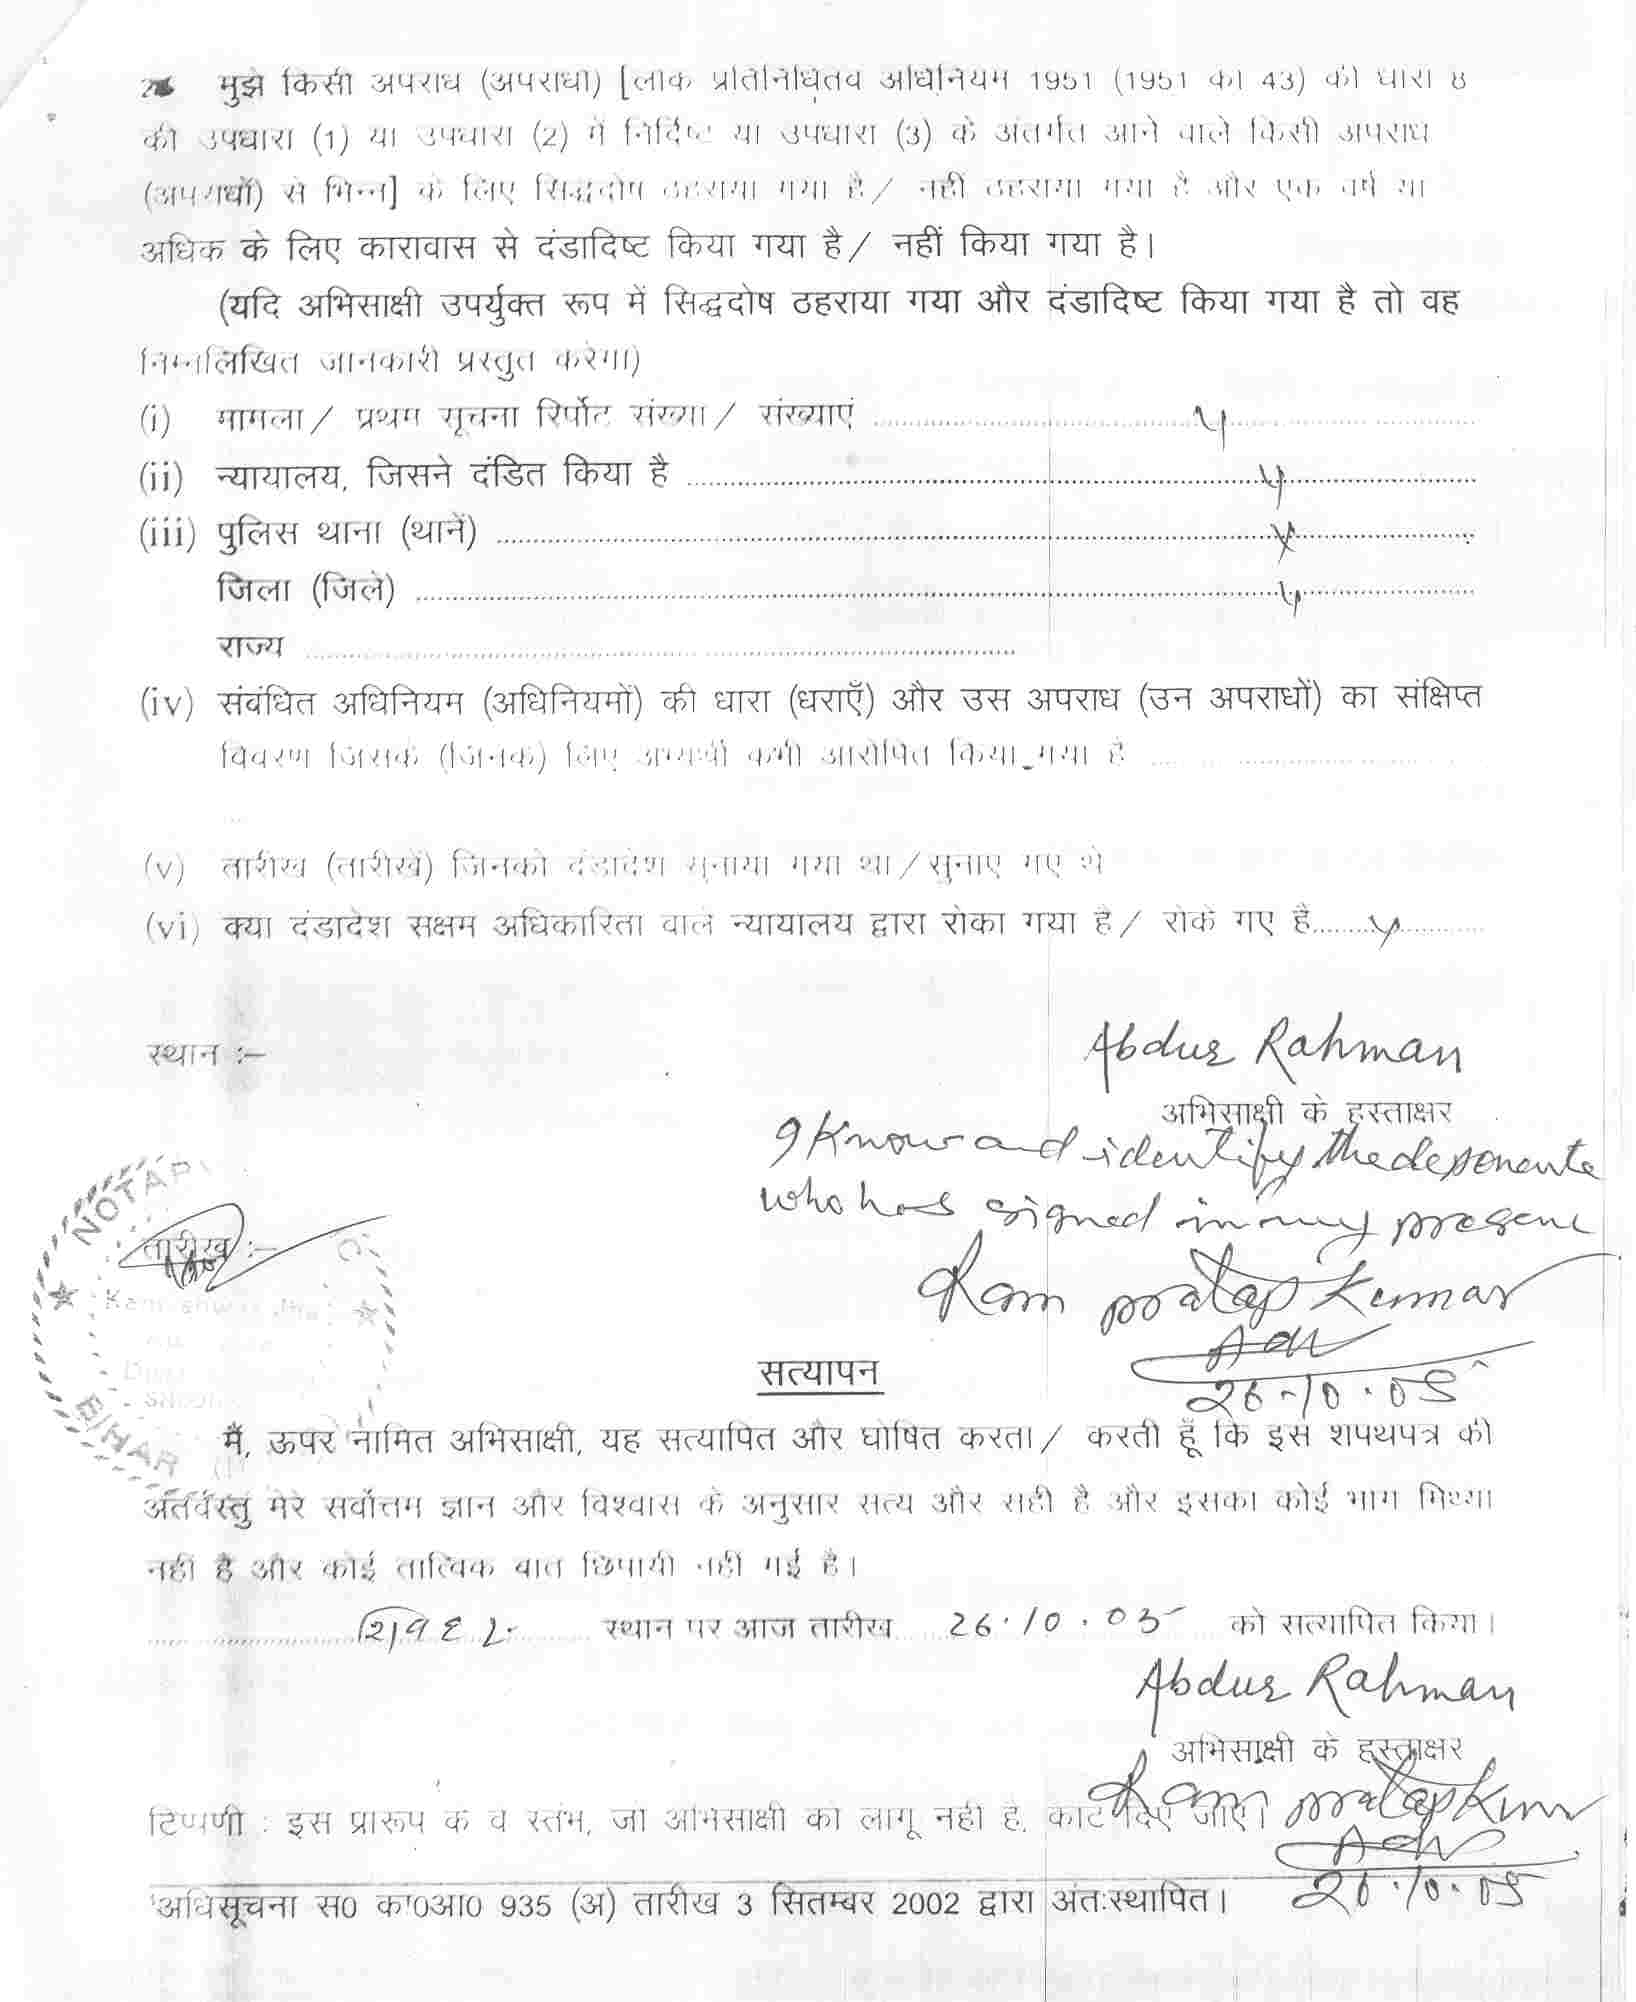 मुझे किसी अपराध (अपराधों) [लोक प्रतिनिधित्व अधिनियम 1951 (1951 का 43) की धारा 8
की उपधारा (1) या उपधारा (2) में निर्दिष्ट या उपधारा (3) के अंतर्गत आने वाले किसी अपराध
(अपराधों) से भिन्न] के लिए सिद्धदोष ठहराया गया है/ नहीं ठहराया गया है और एक वर्ष या
अधिक के लिए कारावास से दंडादिष्ट किया गया है/ नहीं किया गया है।
(यदि अभिसाक्षी उपर्युक्त रूप में सिद्धदोष ठहराया गया और दंडादिष्ट किया गया है तो वह
निम्नलिखित जानकारी प्रस्तुत करेगा)
(i) मामला/ प्रथम सूचना रिर्पोट संख्या/ संख्याएं
(ii) न्यायालय, जिसने दंडित किया है
(iii) पुलिस थाना (थानें)
जिला (जिले)
राज्य
(iv) संबंधित अधिनियम (अधिनियमों) की धारा (धराएँ) और उस अपराध (उन अपराधों) का संक्षिप्त
विवरण जिसके (जिनके) लिए अभ्यर्थी कभी आरोपित किया गया है
(v) तारीख (तारीखें) जिनको दंडादेश सुनाया गया था/सुनाए गए थे
(vi) क्या दंडादेश सक्षम अधिकारिता वाले न्यायालय द्वारा रोका गया है/ रोके गए है
स्थान :–
Abdur Rahman
अभिसाक्षी के हस्ताक्षर
I know and identify the deponente
who has signed in my presene
NOTARY
तारीख :–
Ram pratap Kumar
Adv
26-10.05
BIHAR
सत्यापन
मैं, ऊपर नामित अभिसाक्षी, यह सत्यापित और घोषित करता/ करती हूँ कि इस शपथपत्र की
अंतर्वस्तु मेरे सर्वोत्तम ज्ञान और विश्वास के अनुसार सत्य और सही है और इसका कोई भाग मिथ्या
नहीं है और कोई तात्विक बात छिपायी नहीं गई है।
स्थान पर आज तारीख 26.10.05 को सत्यापित किया।
Abdur Rahman
अभिसाक्षी के हस्ताक्षर
Ram pratap Kumar
टिप्पणी : इस प्रारूप के वे स्तंभ, जो अभिसाक्षी को लागू नहीं है, काट दिए जाएं।
Adv
26.10.05
'अधिसूचना स0 का0आ0 935 (अ) तारीख 3 सितम्बर 2002 द्वारा अंतःस्थापित।